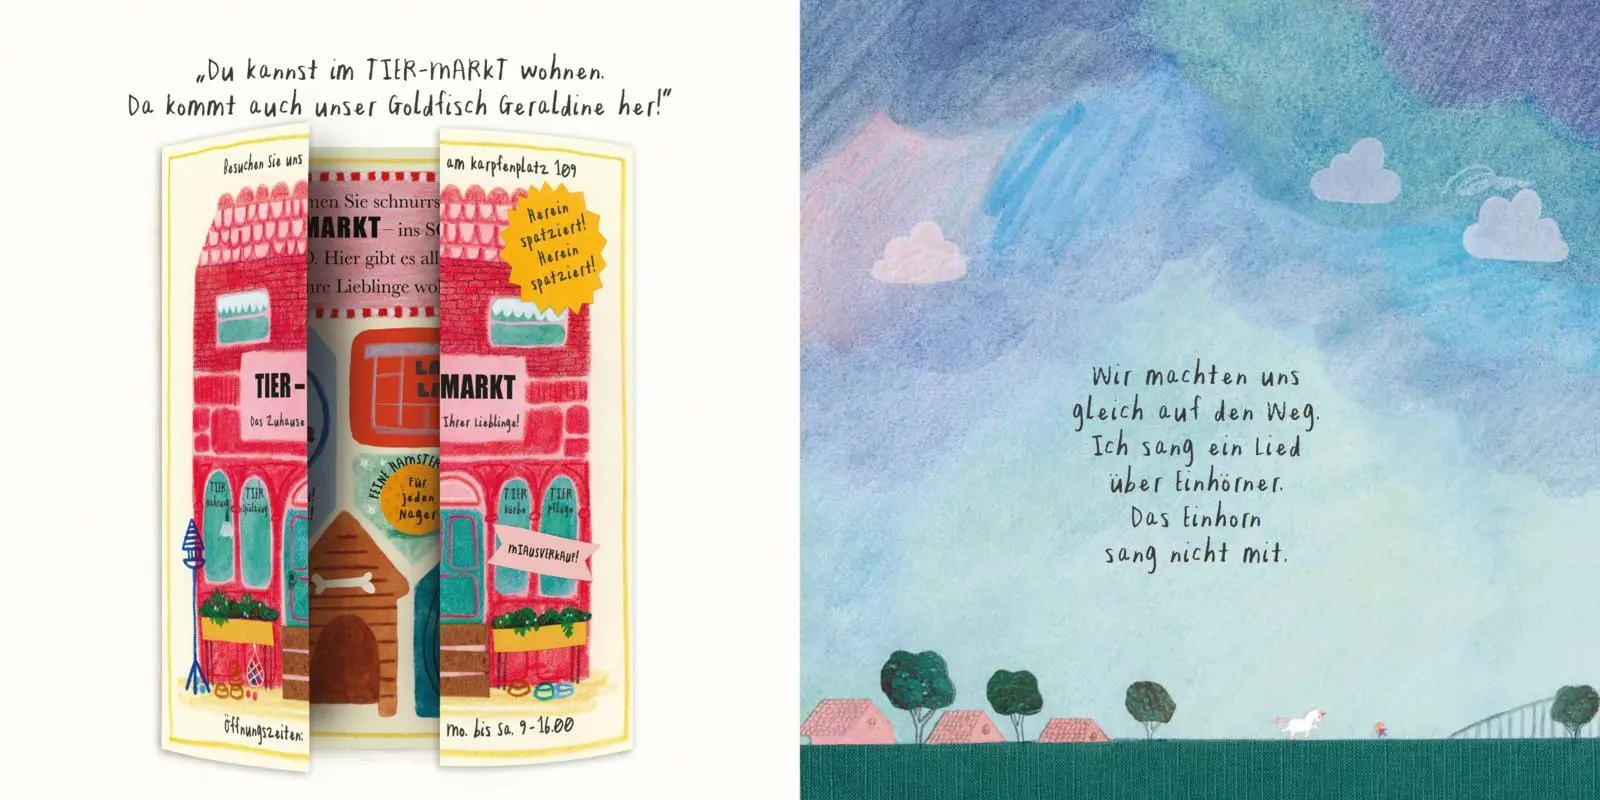 „Du kannst im TIER-MARKT wohnen.
Da kommt auch unser Goldfisch Geraldine her!“
Besuchen Sie uns
am Karpfenplatz 109
Sie schnurrs
MARKT – ins
Hier gibt es
Lieblinge
Herein
spatziert!
Herein
spatziert!
TIER-
MARKT
Das Zuhause
Ihrer Lieblinge!
FEINE HAMSTER
Für
jeden
Nager
TIER
Nahrung
TIER
Spielzeug
TIER
Körbe
TIER
pflege
MIAUSVERKAUF!
Öffnungszeiten:
Mo. bis Sa. 9-16.00
Wir machten uns
gleich auf den Weg.
Ich sang ein Lied
über Einhörner.
Das Einhorn
sang nicht mit.